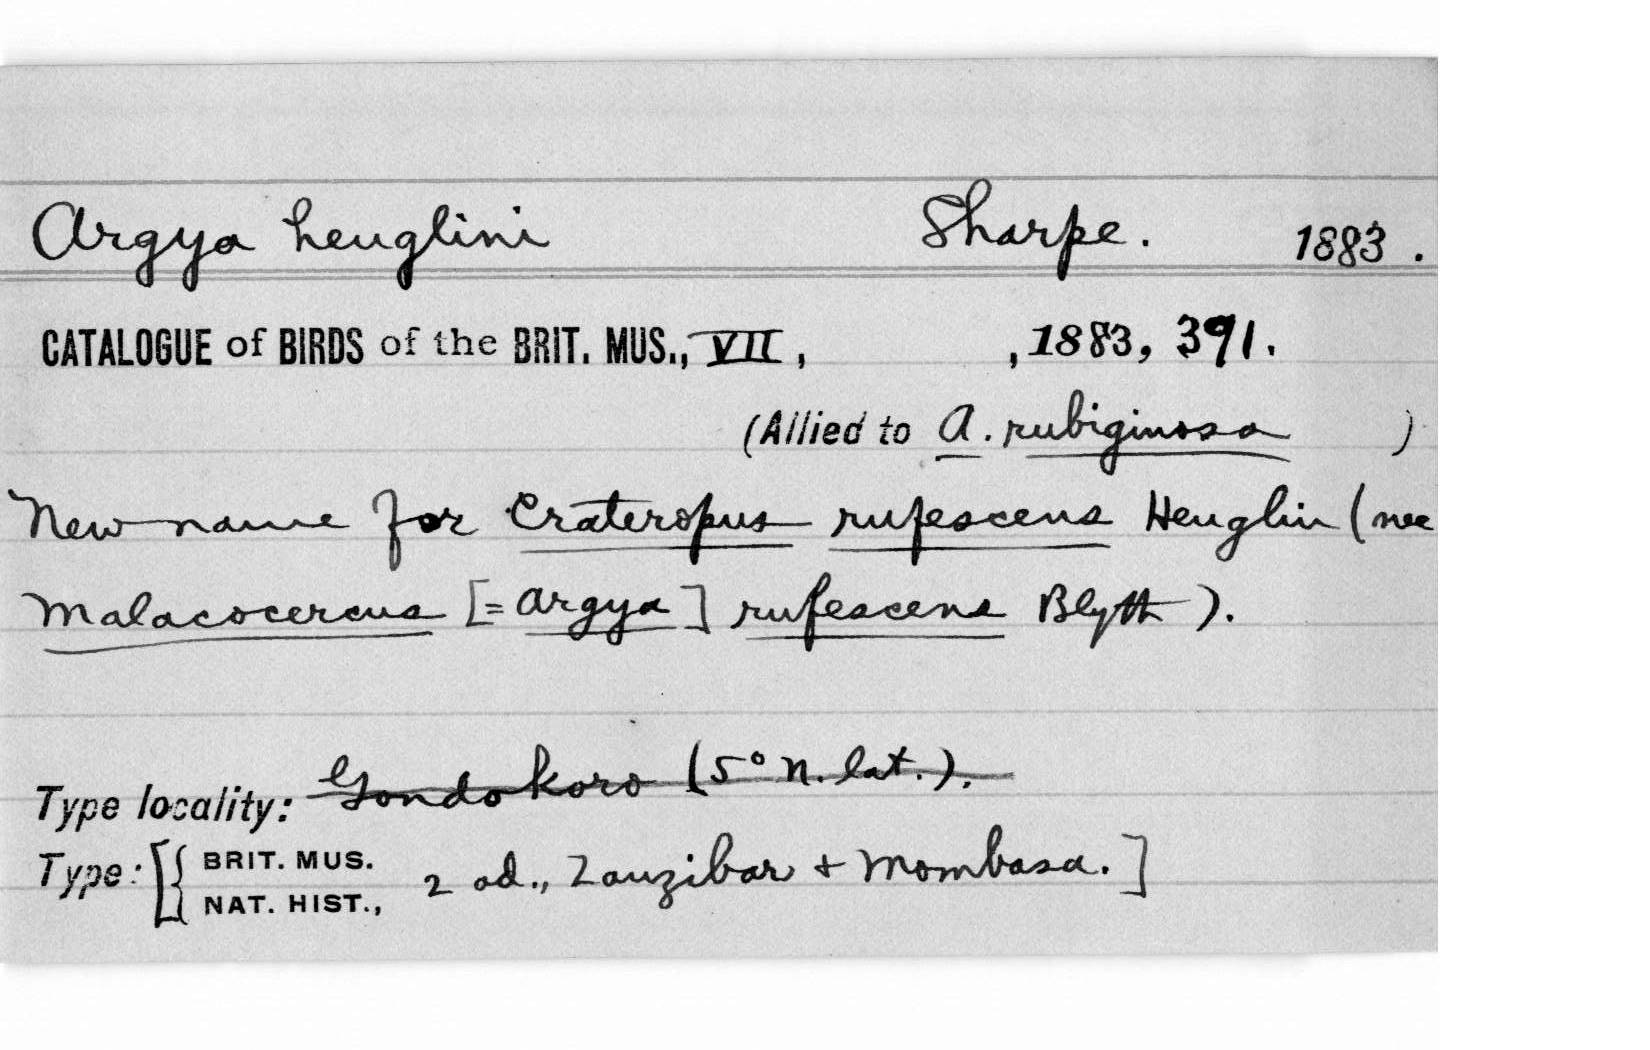 Argya heuglini Sharpe. 1883.
CATALOGUE of BIRDS of the BRIT. MUS., VII, , 1883, 391.
(Allied to A. rubiginosa )
New name for Crateropus rufescens Heuglin (nec
Malacocercus [= Argya] rufescens Blyth).
Type locality: Gondokoro (5° N. lat.).
Type: [{ BRIT. MUS. NAT. HIST., 2 ad., Zanzibar + Mombasa.]